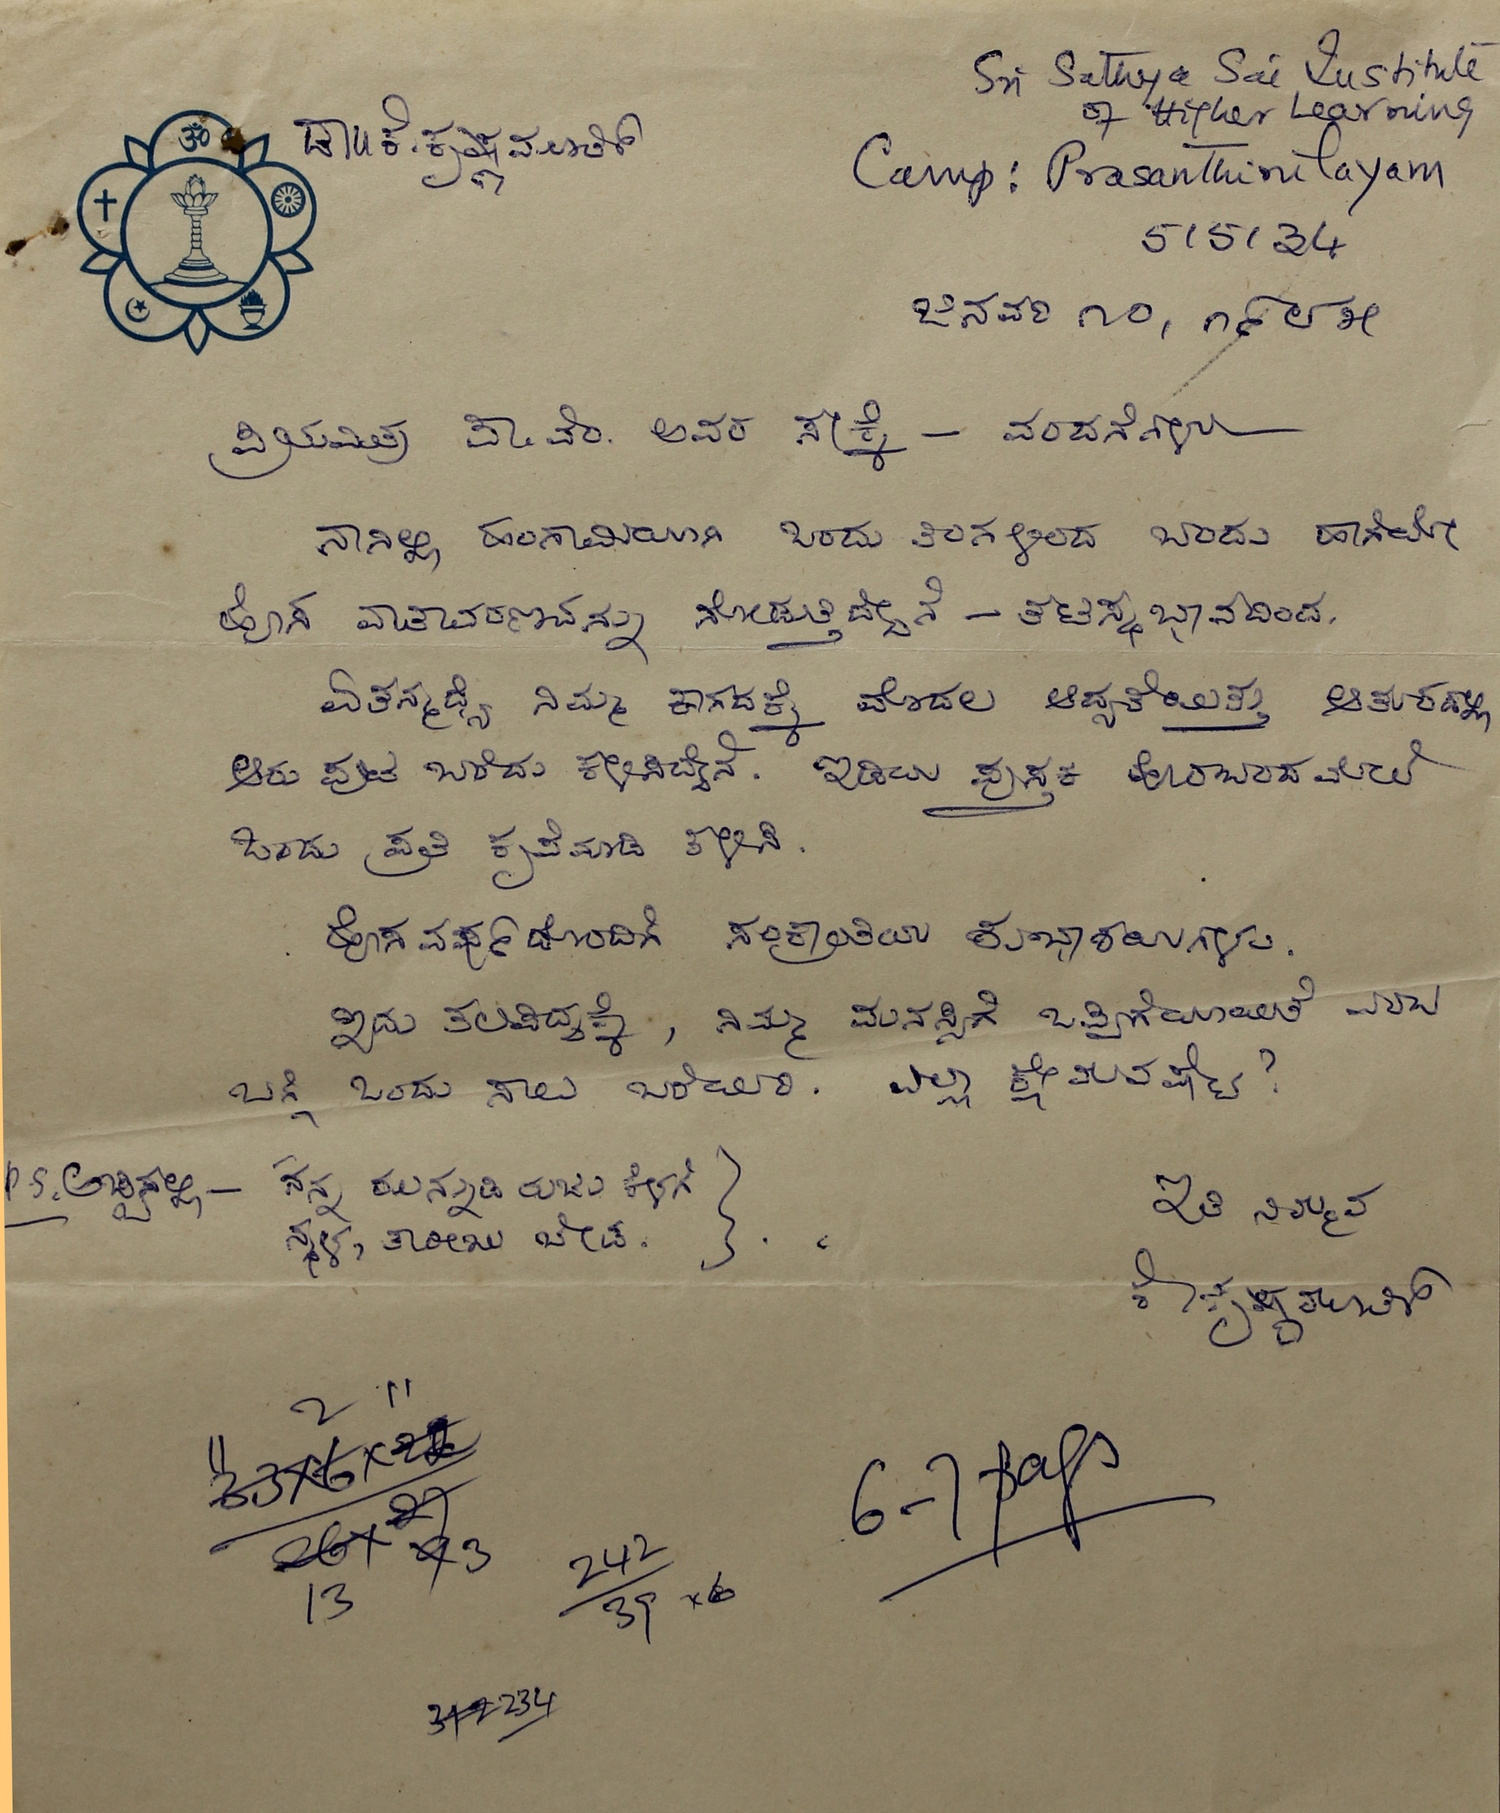 ಡಾ|| ಕೆ. ಕೃಷ್ಣಮೂರ್ತಿ
Sri Sathya Sai Institute
of Higher Learning
Camp: Prasanthinilayam
515134
ಜನವರಿ ೧೦, ೧೯೮೫
ಪ್ರಿಯಮಿತ್ರ ಪಾ.ವೆಂ. ಅವರ ಸ — ವಂದನೆಗಳು
ನಾನಿಲ್ಲಿ ಹಂಗಾಮಿಯಾಗಿ ಒಂದು ತಿಂಗಳಿಂದ ಬಂದು ಹಾಗೆಯೇ
ಹೊಸ ವಾತಾವರಣವನ್ನು ನೋಡುತ್ತಿದ್ದೇನೆ — ತಟಸ್ಥಭಾವದಿಂದ.
ಏತನ್ಮಧ್ಯೆ ನಿಮ್ಮ ಕಾಗದಕ್ಕೆ ಮೊದಲ ಆದ್ಯತೆಯಿತ್ತು
ಆರು ಪುಟ ಬರೆದು ಕಳಿಸಿದ್ದೇನೆ. ಇಡಿಯ ಪುಸ್ತಕ ಹೊರಬಂದಮೇಲೆ
ಒಂದು ಪ್ರತಿ ಕೃಪೆಮಾಡಿ ಕಳಿಸಿ.
ಹೊಸವರ್ಷದೊಂದಿಗೆ ಸಂಕ್ರಾಂತಿಯ ಶುಭಾಶಯಗಳು.
ಇದು ತಲಪಿದ್ದಕ್ಕೆ, ನಿಮ್ಮ ಮನಸ್ಸಿಗೆ ಒಪ್ಪಿಗೆಯಾಯಿತೆ ಎಂಬ
ಬಗ್ಗೆ ಒಂದು ಸಾಲು ಬರೆಯಿರಿ. ಎಲ್ಲಾ ಕ್ಷೇಮವಷ್ಟೆ?
P.S. ಅಚ್ಚಿನಲ್ಲಿ — ನನ್ನ ಮುನ್ನುಡಿ ರುಜು ಕೆಳಗೆ
ಸ್ಥಳ, ತಾರೀಖು ಬೇಡ.
ಇತಿ ನಿಮ್ಮವ
ಕೆ. ಕೃಷ್ಣಮೂರ್ತಿ
2 11
11
33×6×22
26× 27 3
13
242
39 ×6
6-7 pages
234